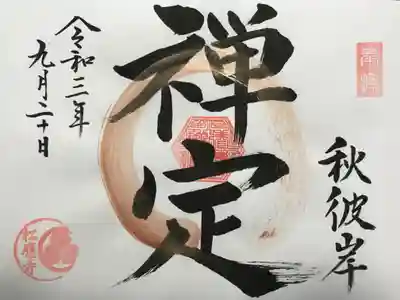 秋彼岸
禅定
令和三年
九月二十日